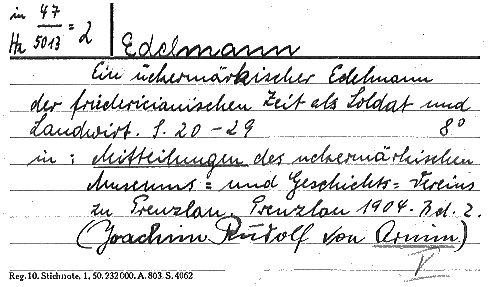 in 47
Ha 5013 = 2
Edelmann
Ein uckermärkischer Edelmann
der friedericianischen Zeit als Soldat und
Landwirt. S. 20-29 8°
in: Mitteilungen des uckermärkischen
Museums= und Geschichts=Vereins
zu Prenzlau. Prenzlau 1904. Bd. 2.
(Joachim Rudolf von Arnim)
V
Reg. 10. Stichnote. 1. 50. 232 000. A. 803. S. 4062